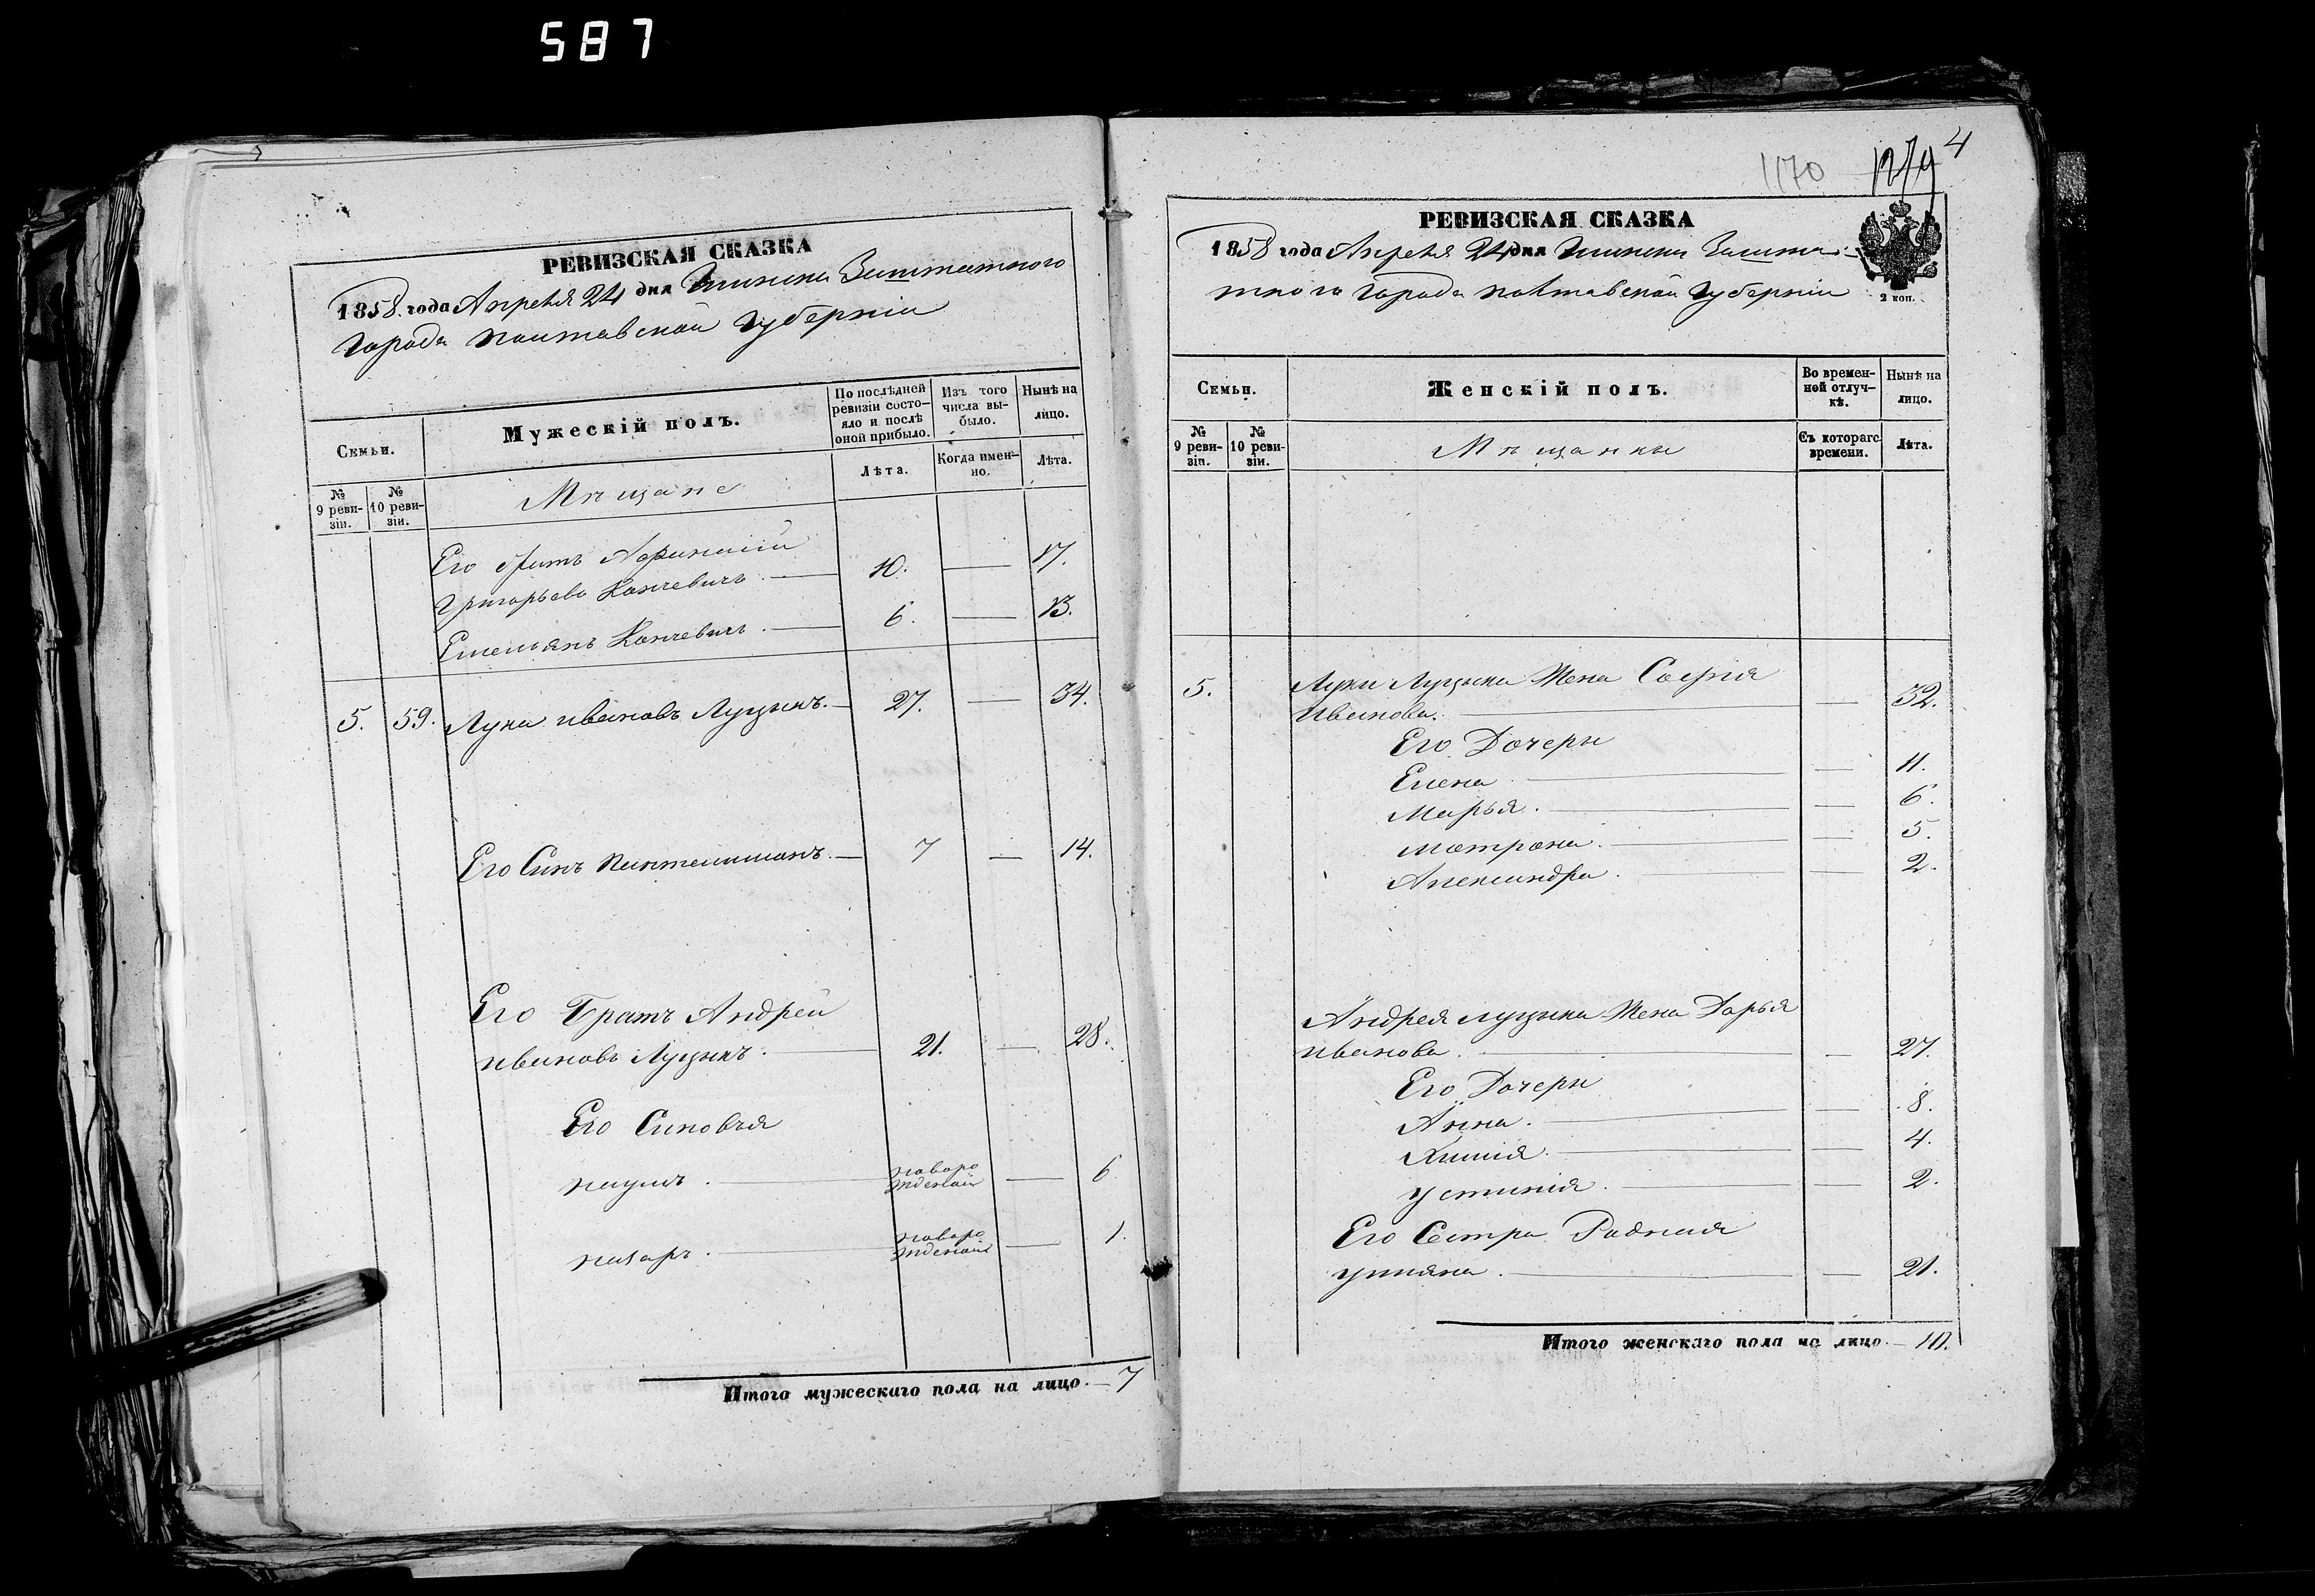 587
РЕВИЗСКАЯ СКАЗКА
1858 года Апреля 24 дня Глинска Заштатного
города Полтавской Губернии
Семьи.
Мужескій полъ.
По послѣдней ревизіи состо-
яло и послѣ
оной прибыло.
Изъ того
числа вы-
было.
Нынѣ на
лицо.
№
9 реви-
зіи.
№
10 реви-
зіи.
Мѣщане
Лѣта.
Когда имен-
но.
Лѣта.
Его братъ Афанасій
Григорьевъ Кончевичъ. — 10. — 17.
Емельянъ Кончевичъ. — 6. — 13.
5. 59. Лука Ивановъ Луцыкъ. — 27. — 34.
Его Синъ Пантелимонъ. — 7 — 14.
Его Братъ Андрей
Ивановъ Луцыкъ. — 21. — 28.
Его Синовья
Наумъ. — новоро
жденой — 6
Назаръ. — новоро
жденой — 1.
Итого мужескаго пола на лицо. — 7
1170 1279 4
РЕВИЗСКАЯ СКАЗКА
1858 года Апреля 24 дня Глинска Зашта-
тного Города Полтавской Губернии
2 коп.
Семьи.
Женскій полъ.
Во времен-
ной отлуч-
кѣ.
Нынѣ на
лицо.
№
9 реви-
зіи.
№
10 реви-
зіи.
Мѣщанки
Съ котораго
времени.
Лѣта.
5. Луки Луцыка Жена Софія
Иванова. — — 32.
Его Дочери
Елена — — 11.
Марья. — — 6.
Матрона. — — 5.
Александра. — — 2.
Андрея Луцыка Жена Дарья
Иванова. — — 27.
Его Дочери
Анна. — — 8.
Химія. — — 4.
Устинія. — — 2.
Его Сестра Родная
Уліяна. — — 21.
Итого женскаго пола на лицо. — 10.